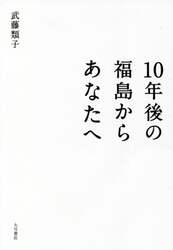 10年後の
福島から
あなたへ
武藤類子
大月書店